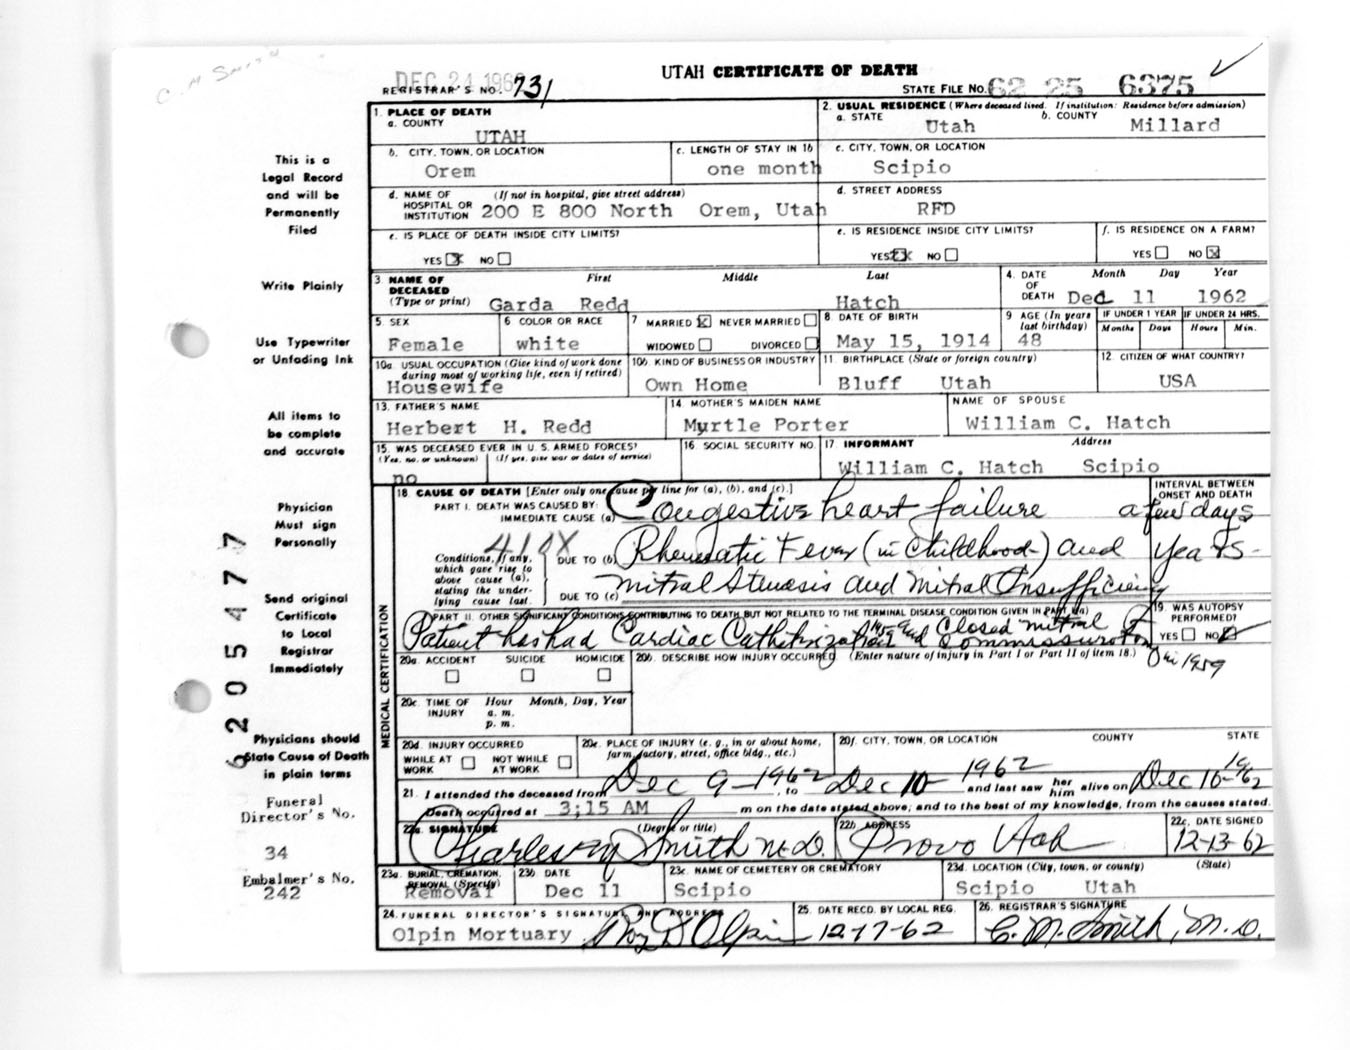 C. M Smith
DEC 24 196
UTAH CERTIFICATE OF DEATH
REGISTRAR'S NO. 731
STATE FILE NO. 62 25 6375
This is a
Legal Record
and will be
Permanently
Filed
Write Plainly
Use Typewriter
or Unfading Ink
All items to
be complete
and accurate
Physician
Must sign
Personally
Send original
Certificate
to Local
Registrar
Immediately
Physicians should
State Cause of Death
in plain terms
Funeral
Director's No.
34
Embalmer's No.
242
6205477
1. PLACE OF DEATH
a. COUNTY
UTAH
2. USUAL RESIDENCE (Where deceased lived. If institution: Residence before admission)
a. STATE Utah b. COUNTY Millard
b. CITY, TOWN, OR LOCATION
Orem
c. LENGTH OF STAY IN 1b
one month
c. CITY, TOWN, OR LOCATION
Scipio
d. NAME OF HOSPITAL OR INSTITUTION (If not in hospital, give street address)
200 E 800 North Orem, Utah
d. STREET ADDRESS
RFD
e. IS PLACE OF DEATH INSIDE CITY LIMITS?
YES X NO
e. IS RESIDENCE INSIDE CITY LIMITS?
YES X NO
f. IS RESIDENCE ON A FARM?
YES NO X
3. NAME OF DECEASED (Type or print)
First Middle Last
Garda Redd Hatch
4. DATE OF DEATH Month Day Year
Dec 11 1962
5. SEX
Female
6 COLOR OR RACE
white
7 MARRIED X NEVER MARRIED
WIDOWED DIVORCED
8 DATE OF BIRTH
May 15, 1914
9 AGE (In years last birthday)
48
IF UNDER 1 YEAR IF UNDER 24 HRS.
Months Days Hours Min.
10a. USUAL OCCUPATION (Give kind of work done during most of working life, even if retired)
Housewife
10b. KIND OF BUSINESS OR INDUSTRY
Own Home
11. BIRTHPLACE (State or foreign country)
Bluff Utah
12. CITIZEN OF WHAT COUNTRY?
USA
13. FATHER'S NAME
Herbert H. Redd
14. MOTHER'S MAIDEN NAME
Myrtle Porter
NAME OF SPOUSE
William C. Hatch
15. WAS DECEASED EVER IN U. S. ARMED FORCES?
(Yes, no, or unknown) (If yes, give war or dates of service)
no
16. SOCIAL SECURITY NO.
17. INFORMANT Address
William C. Hatch Scipio
MEDICAL CERTIFICATION
18. CAUSE OF DEATH [Enter only one cause per line for (a), (b), and (c).]
INTERVAL BETWEEN ONSET AND DEATH
PART I. DEATH WAS CAUSED BY:
IMMEDIATE CAUSE (a) Congestive heart failure a few days
410X
Conditions, if any, which gave rise to above cause (a), stating the underlying cause last.
DUE TO (b) Rheumatic Fever (in childhood) and Years
DUE TO (c) mitral stenosis and mitral Insufficiency
PART II. OTHER SIGNIFICANT CONDITIONS CONTRIBUTING TO DEATH BUT NOT RELATED TO THE TERMINAL DISEASE CONDITION GIVEN IN PART I(a)
Patient has had Cardiac Catheterization 1959 and Closed mitral Commissurotomy in 1959
19. WAS AUTOPSY PERFORMED?
YES NO
20a. ACCIDENT SUICIDE HOMICIDE
20b. DESCRIBE HOW INJURY OCCURRED. (Enter nature of injury in Part I or Part II of item 18.)
20c. TIME OF INJURY Hour Month, Day, Year
a. m.
p. m.
20d. INJURY OCCURRED
WHILE AT WORK NOT WHILE AT WORK
20e. PLACE OF INJURY (e. g., in or about home, farm, factory, street, office bldg., etc.)
20f. CITY, TOWN, OR LOCATION COUNTY STATE
21. I attended the deceased from Dec 9-1962, to Dec 10 1962 and last saw her him alive on Dec 10-1962
Death occurred at 3;15 AM m on the date stated above; and to the best of my knowledge, from the causes stated.
22a. SIGNATURE (Degree or title)
Charles M Smith M.D.
22b. ADDRESS
Provo Utah
22c. DATE SIGNED
12-13-62
23a. BURIAL, CREMATION, REMOVAL (Specify)
Removal
23b DATE
Dec 11
23c. NAME OF CEMETERY OR CREMATORY
Scipio
23d. LOCATION (City, town, or county) (State)
Scipio Utah
24. FUNERAL DIRECTOR'S SIGNATURE AND ADDRESS
Olpin Mortuary Roy D Olpin
25. DATE RECD. BY LOCAL REG.
12-17-62
26. REGISTRAR'S SIGNATURE
C. M. Smith, M.D.